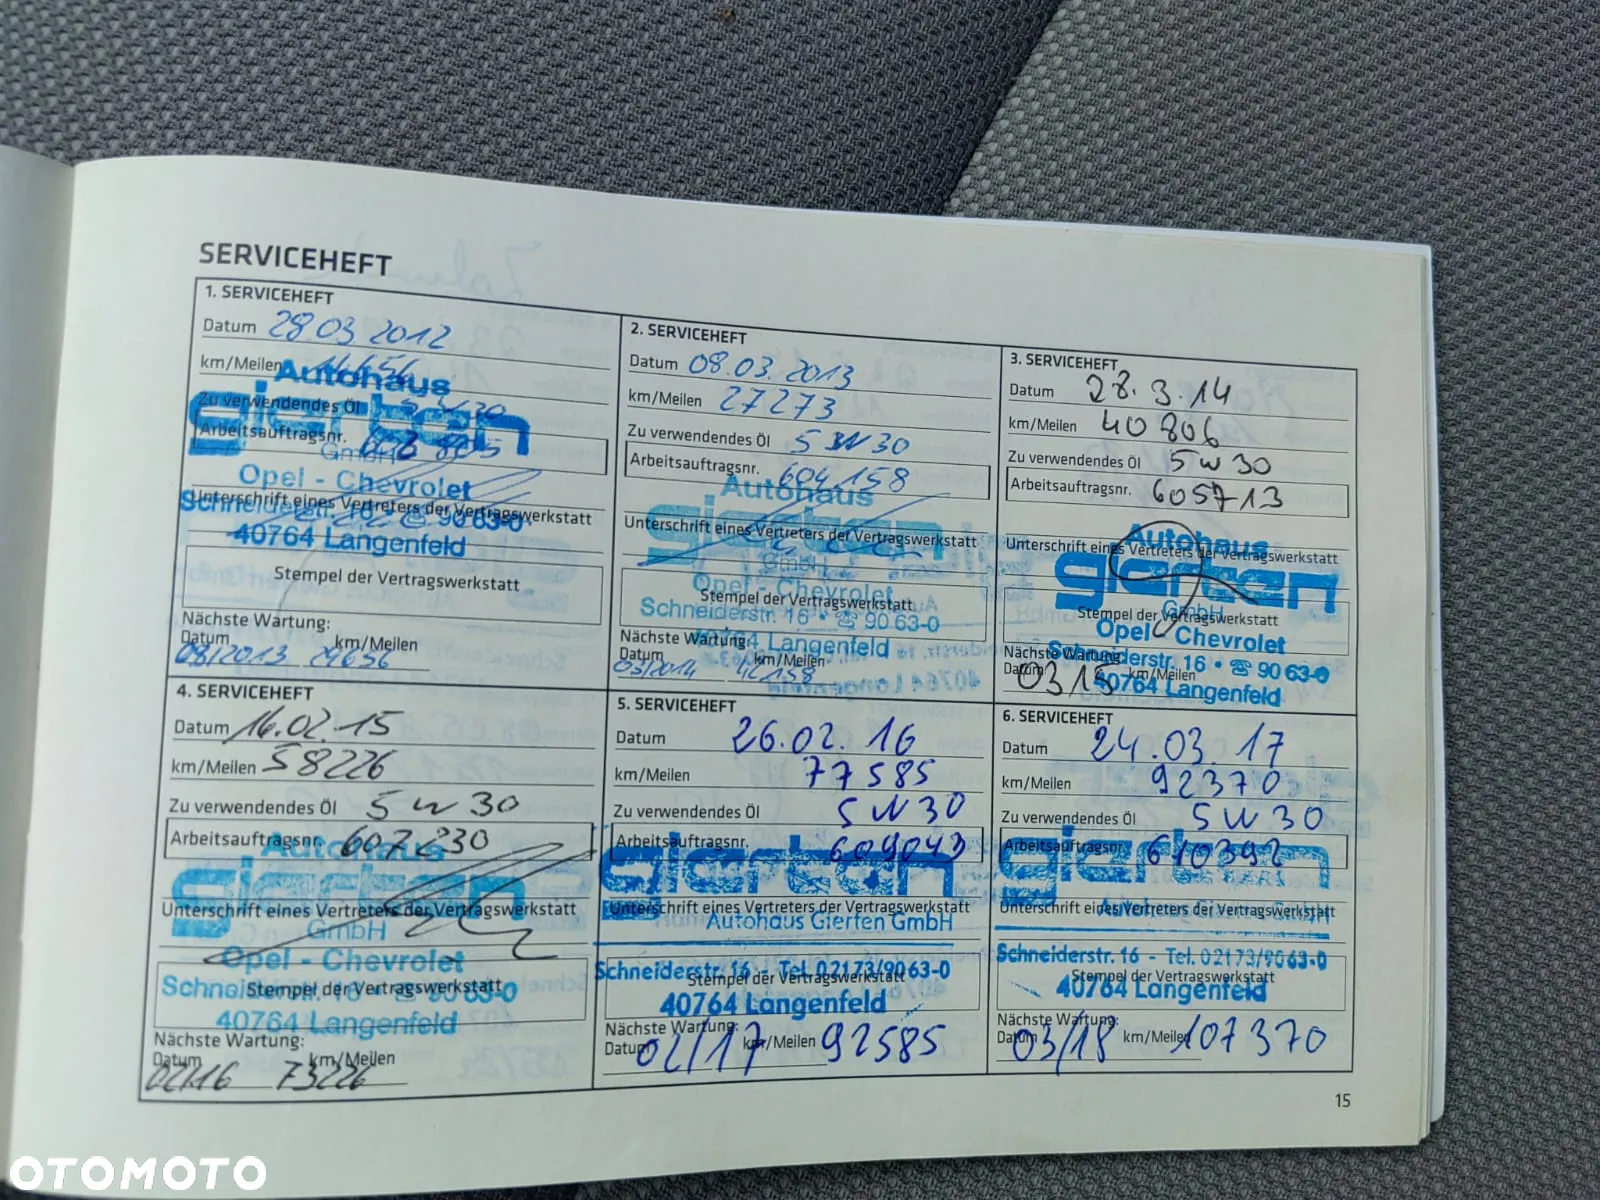 SERVICEHEFT
1. SERVICEHEFT
Datum 28.03 2012
km/Meilen 14656
Zu verwendendes Öl 5W30
Arbeitsauftragsnr.
Autohaus
gierten
GmbH
Opel - Chevrolet
Unterschrift eines Vertreters der Vertragswerkstatt
Schneiderstr. ☏ 90 63-0
40764 Langenfeld
Stempel der Vertragswerkstatt
Nächste Wartung:
Datum km/Meilen
03/2013 29656
2. SERVICEHEFT
Datum 08.03.2013
km/Meilen 27273
Zu verwendendes Öl 5W30
Arbeitsauftragsnr. 604158
Autohaus
gierten
Unterschrift eines Vertreters der Vertragswerkstatt
GmbH
Opel - Chevrolet
Stempel der Vertragswerkstatt
Schneiderstr. 16 • ☏ 90 63-0
40764 Langenfeld
Nächste Wartung:
Datum km/Meilen
03/2014 42158
3. SERVICEHEFT
Datum 28.3.14
km/Meilen 40806
Zu verwendendes Öl 5W30
Arbeitsauftragsnr. 605713
Autohaus
Unterschrift eines Vertreters der Vertragswerkstatt
gierten
GmbH
Stempel der Vertragswerkstatt
Opel - Chevrolet
Schneiderstr. 16 • ☏ 90 63-0
40764 Langenfeld
Nächste Wartung:
Datum km/Meilen
03/15
4. SERVICEHEFT
Datum 16.02.15
km/Meilen 58226
Zu verwendendes Öl 5W30
Arbeitsauftragsnr. 607230
Autohaus
gierten
Unterschrift eines Vertreters der Vertragswerkstatt
GmbH
Opel - Chevrolet
Stempel der Vertragswerkstatt
Schneiderstr. 16 • ☏ 90 63-0
40764 Langenfeld
Nächste Wartung:
Datum km/Meilen
02/16 73226
5. SERVICEHEFT
Datum 26.02.16
km/Meilen 77585
Zu verwendendes Öl 5W30
Arbeitsauftragsnr. 609043
gierten
Unterschrift eines Vertreters der Vertragswerkstatt
Autohaus Gierten GmbH
Schneiderstr. 16 - Tel. 02173/90 63-0
Stempel der Vertragswerkstatt
40764 Langenfeld
Nächste Wartung:
Datum 02/17 km/Meilen 92585
6. SERVICEHEFT
Datum 24.03.17
km/Meilen 92370
Zu verwendendes Öl 5W30
Arbeitsauftragsnr. 610392
gierten
Unterschrift eines Vertreters der Vertragswerkstatt
Autohaus Gierten GmbH
Schneiderstr. 16 - Tel. 02173/90 63-0
Stempel der Vertragswerkstatt
40764 Langenfeld
Nächste Wartung:
Datum 03/18 km/Meilen 107370
15
OTOMOTO